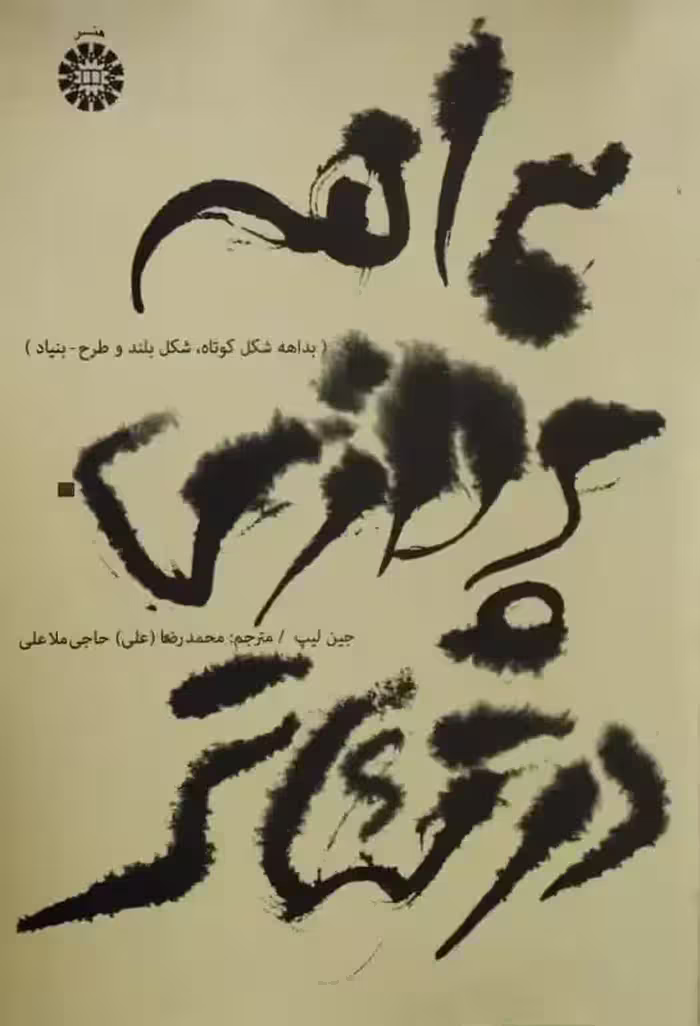 هنر
بداهه
( بداهه شکل کوتاه، شکل بلند و طرح-بنیاد )
پردازی
جین لیپ / مترجم: محمدرضا (علی) حاجی‌ملاعلی
در تئاتر